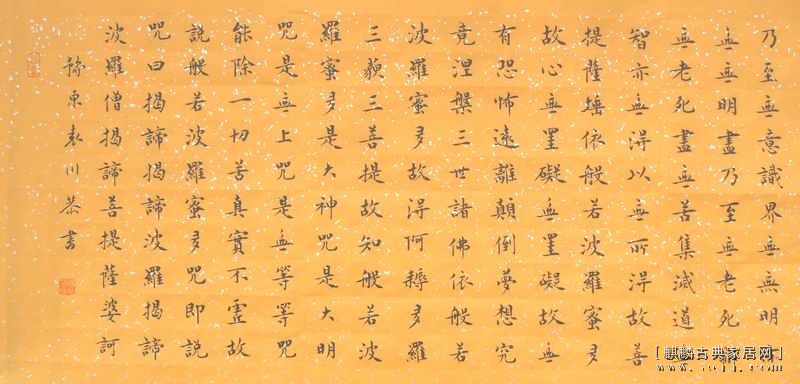 乃至無意識界無無明亦
無無明盡乃至無老死亦
無老死盡無苦集滅道無
智亦無得以無所得故菩
提薩埵依般若波羅蜜多
故心無罣礙無罣礙故無
有恐怖遠離顛倒夢想究
竟涅槃三世諸佛依般若
波羅蜜多故得阿耨多羅
三藐三菩提故知般若波
羅蜜多是大神咒是大明
咒是無上咒是無等等咒
能除一切苦真實不虛故
説般若波羅蜜多咒即説
咒曰揭諦揭諦波羅揭諦
波羅僧揭諦菩提薩婆訶
豫東袁川恭書
[麒麟古典家居网]